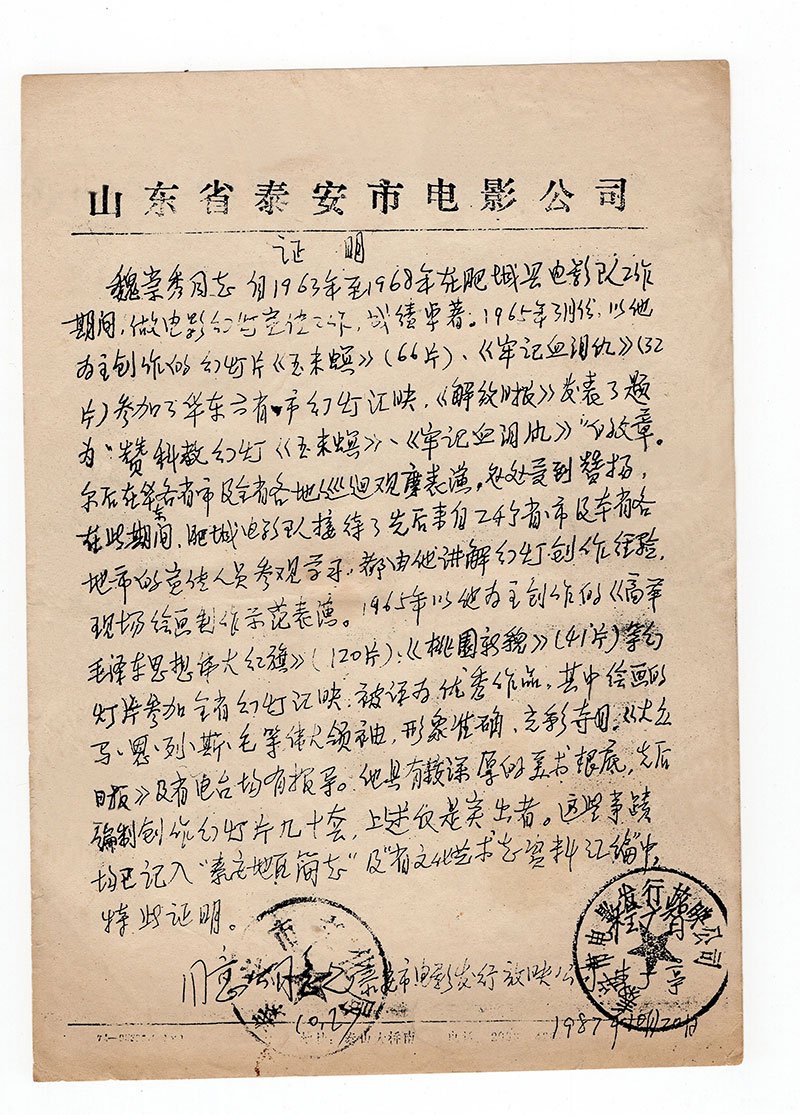 山东省泰安市电影公司
证明
魏崇秀同志自1963年至1968年在肥城县电影队工作
期间，做电影幻灯宣传工作，成绩卓著。1965年3月份，以他
为主创作的幻灯片《玉米螟》（66片）、《牢记血泪仇》（32
片）参加了华东六省、市幻灯汇映，《解放日报》发表了题
为“赞科教幻灯《玉米螟》、《牢记血泪仇》”的文章。
尔后在华东各省市及全省各地巡迴观摩表演，处处受到赞扬，
在此期间，肥城电影队接待了先后来自24个省、市及本省各
地市的宣传人员参观学习，都由他讲解幻灯创作经验，
现场绘画制作示范表演。1965年以他为主创作的《高举
毛泽东思想伟大红旗》（120片）、《桃园新貌》（41片）等幻
灯片参加全省幻灯汇映，被评为优秀作品，其中绘画的
马、恩、列、斯、毛等伟大领袖，形象准确，光彩夺目。《大众
日报》及省电台均有报导。他具有较深厚的美术根底，先后
编制创作幻灯片九十套，上述仅是突出者。这些事蹟
均已记入“泰安地区简志”及“省文化艺术志资料汇编”中，
特此证明。
同意 泰安市电影发行放映公司
10.2
1987年10月20日